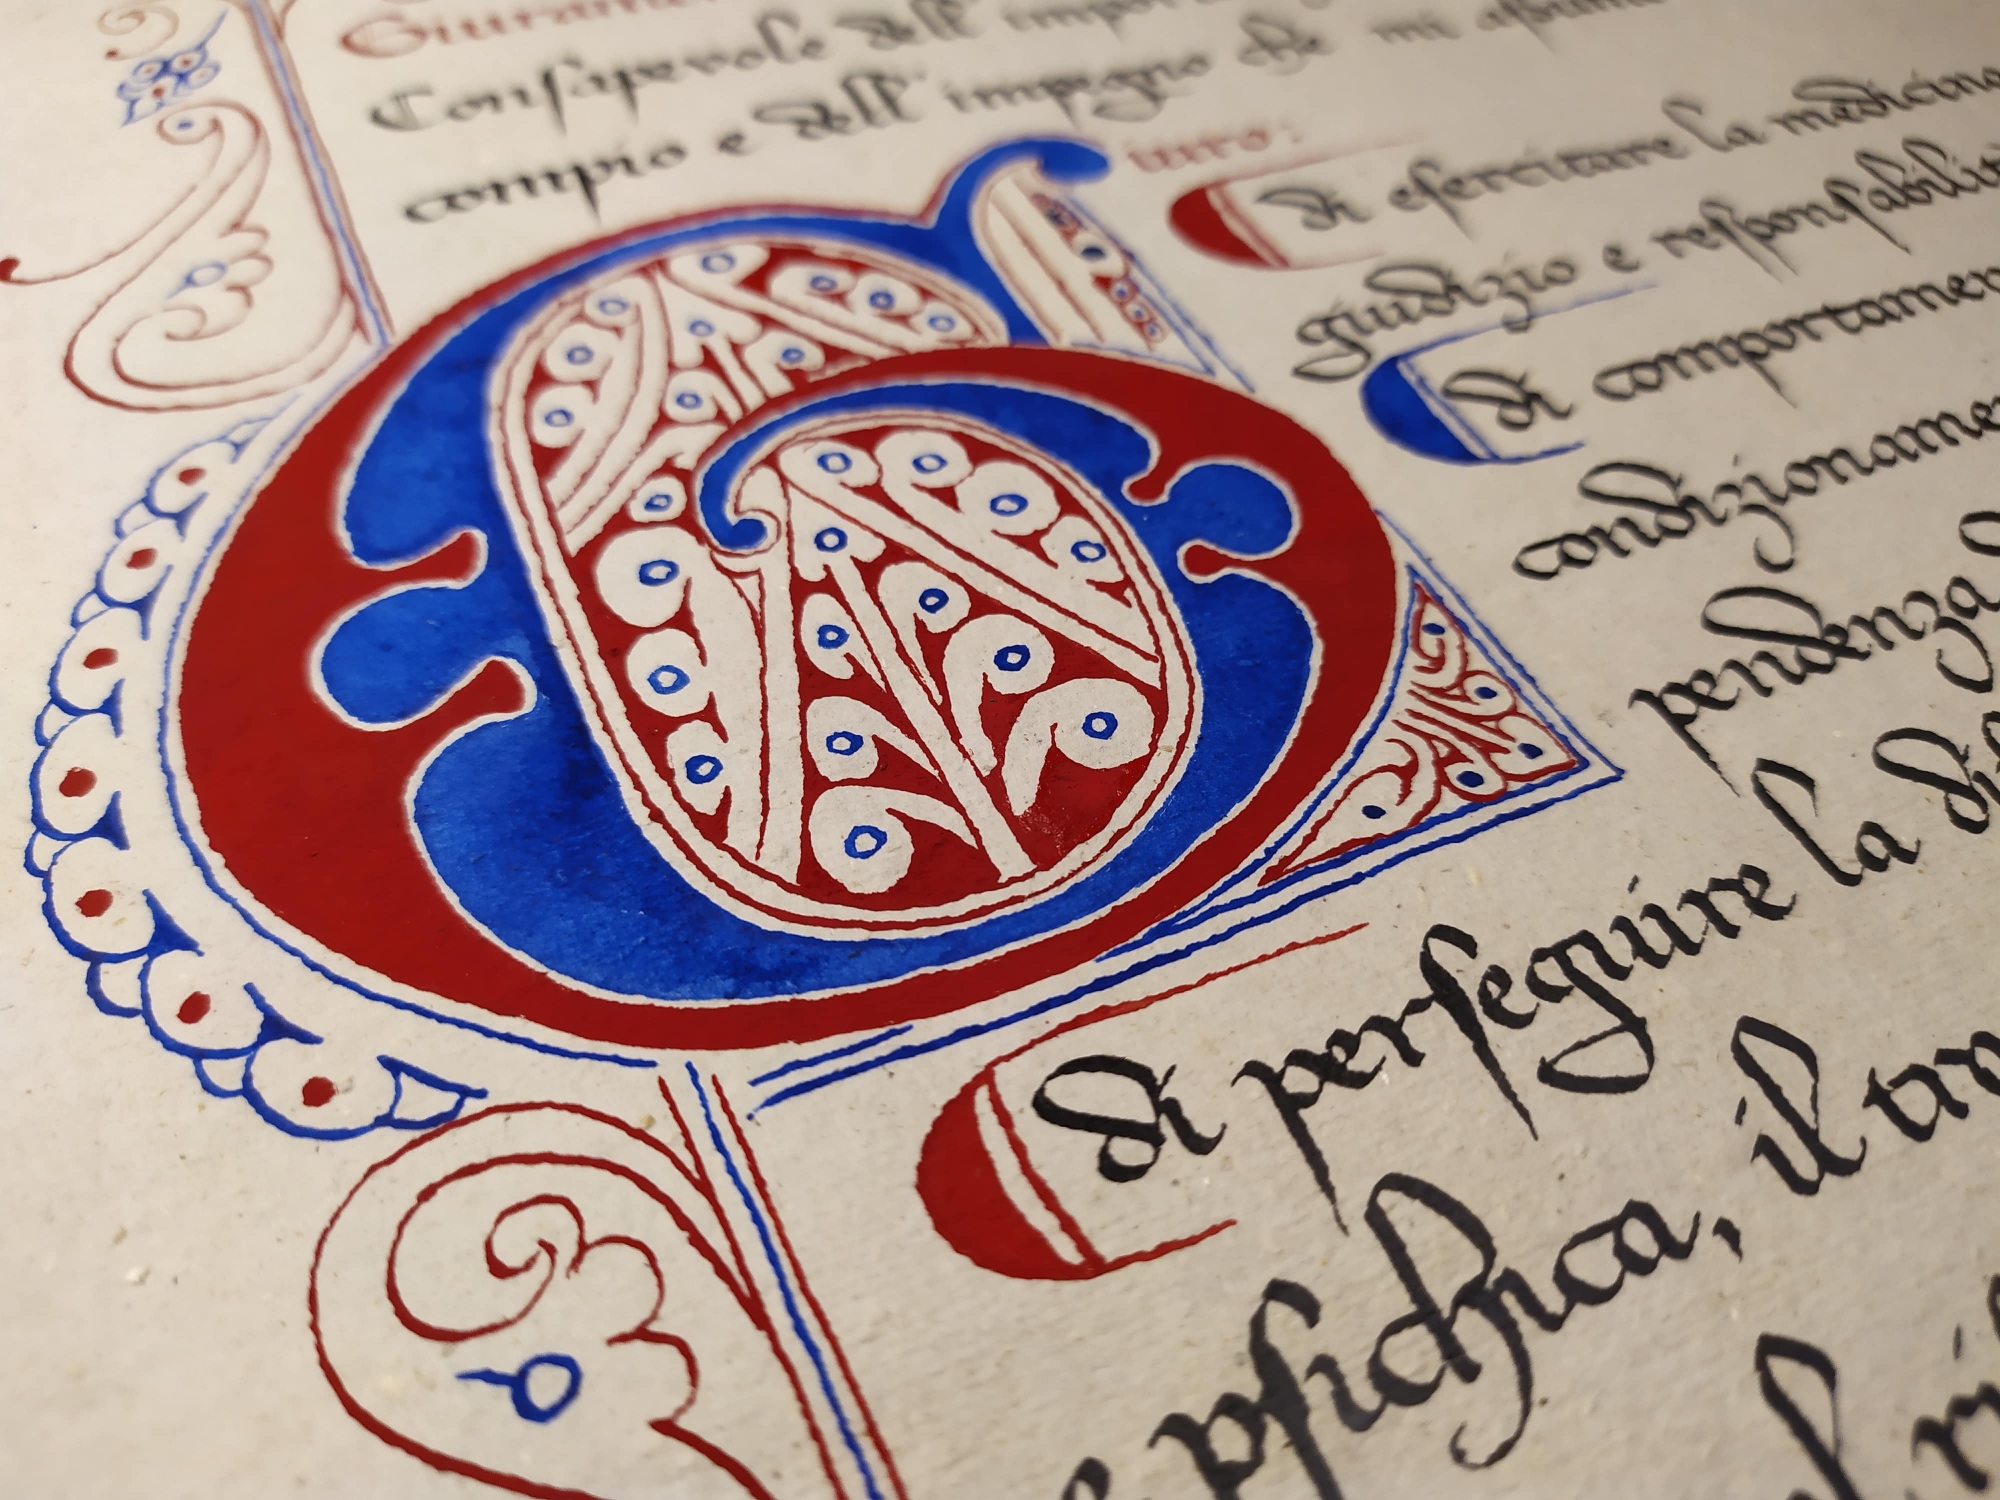 Giuramen
Consapevole dell' impor
compio e dell' impegno che mi assumo
Giuro:
di esercitare la medicina
giudizio e responsabilit
di comportamen
condizioname
pendenza d
di perseguire la di
e psichica, il tra